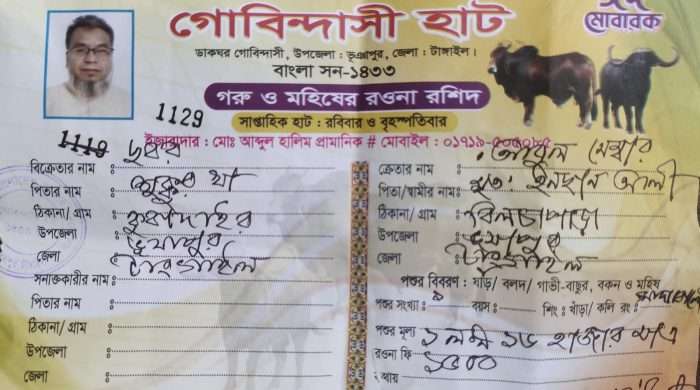 ঈদ মোবারক
গোবিন্দাসী হাট
ডাকঘর গোবিন্দাসী, উপজেলা : ভূঞাপুর, জেলা : টাঙ্গাইল।
বাংলা সন-১৪৩৩
গরু ও মহিষের রওনা রশিদ
1129
সাপ্তাহিক হাট : রবিবার ও বৃহস্পতিবার
1110
ইজারাদার : মোঃ আব্দুল হালিম প্রামানিক # মোবাইল :
বিক্রেতার নাম
পিতার নাম
ঠিকানা/ গ্রাম
উপজেলা ভুয়াপুর
জেলা টাংগাইল
সনাক্তকারীর নাম
পিতার নাম
ঠিকানা/ গ্রাম
উপজেলা
জেলা
ক্রেতার নাম আবুল মেম্বার
পিতা/স্বামীর নাম মৃত: ইনছান আলী
ঠিকানা/ গ্রাম বিলচাপড়া
উপজেলা ভুয়াপুর
জেলা টাংগাইল
পশুর বিবরণ : ষাঁড়/ বলদ/ গাভী-বাছুর, বকন ও মহিষ
পশুর সংখ্যা : বয়স : শিং : খাঁড়া/ কলি রং :
পশুর মূল্য ১ লক্ষ ১৬ হাজার মাত্র
রওনা ফি